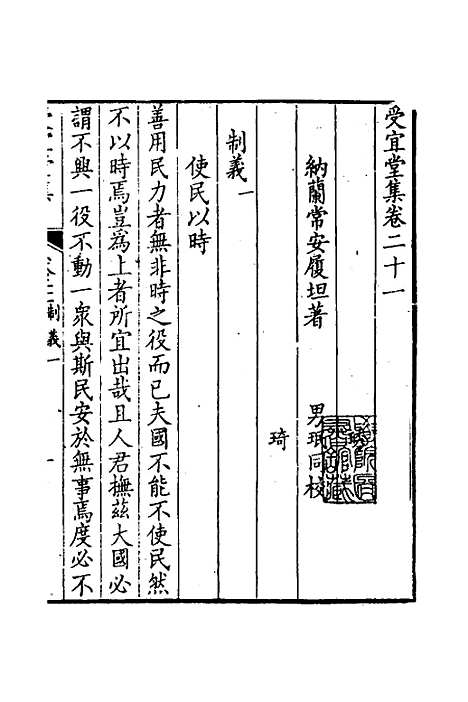 受宜堂集卷二十一
納蘭常安履坦著
男珉同校
琦
制義一
使民以時
善用民力者無非時之役而已夫國不能不使民然
不以時焉豈爲上者所宜出哉且人君撫茲大國必
謂不興一役不動一衆與斯民安於無事焉度必不
制義一
一